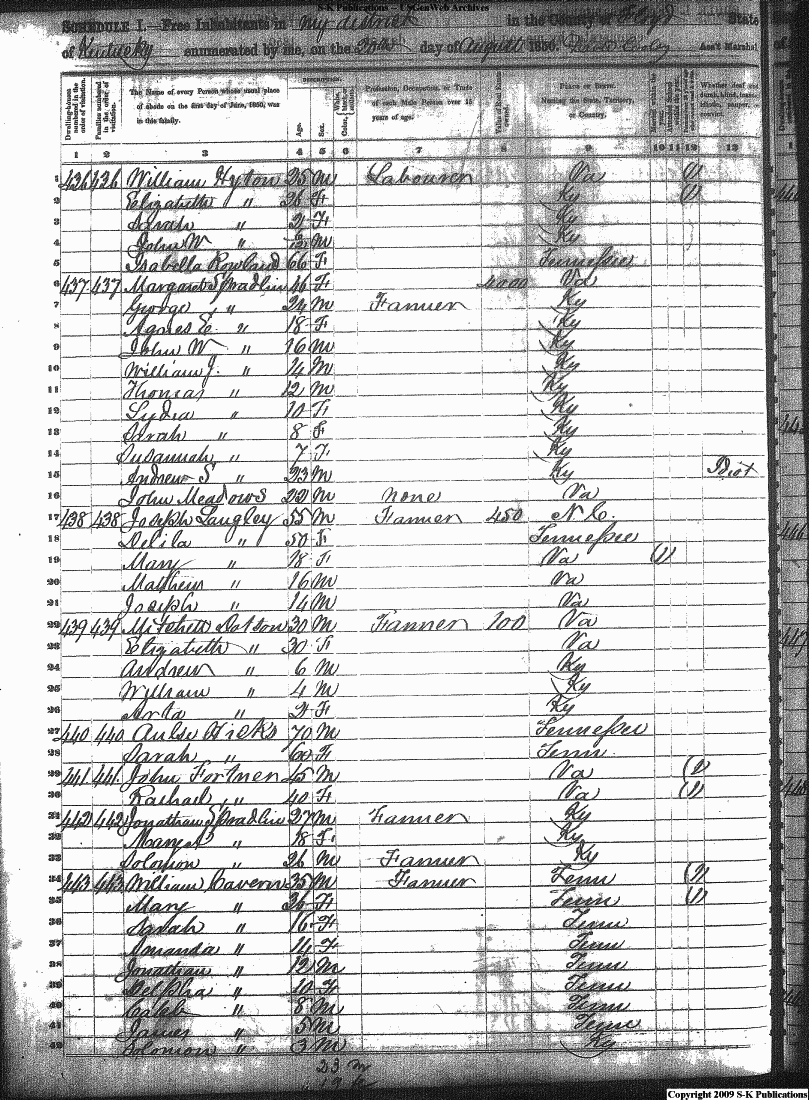 S-K Publications - USGenWeb Archives
SCHEDULE I.—Free Inhabitants in my district in the County of Floyd State
of Kentucky enumerated by me, on the day of August 1850. Ass't Marshal
DESCRIPTION.
Dwelling-houses numbered in the order of visitation.
Families numbered in the order of visitation.
The Name of every Person whose usual place of abode on the first day of June, 1850, was in this family.
Age.
Sex.
Color,
Profession, Occupation, or Trade of each Male Person over 15 years of age.
Value of Real Estate owned.
PLACE OF BIRTH. Naming the State, Territory, or Country.
Whether deaf and dumb, blind, insane, idiotic, pauper, or convict.
1 2 3 4 5 6 7 8 9 10 11 12 13
1 436 436 William Hyton 25 M Labourer Va (1)
2 Elizabeth " 26 F Ky (1)
3 Sarah " 2 F Ky
4 John W " M Ky
5 Isabella Rowland 66 F Tennessee
6 437 437 Margaret Spradlin 46 F 4000 Va
7 George " 24 M Farmer Ky
8 Agnes E. " 18 F Ky
9 John W " 16 M Ky
10 William J. " 14 M Ky
11 Thomas " 12 M Ky
12 Lydia " 10 F Ky
13 Sarah " 8 F Ky
14 Susannah " 7 F Ky
15 Andrew S " 23 M Ky Idiot
16 John Meadows 22 M none Va
17 438 438 Joseph Langley 55 M Farmer 450 N C.
18 Delila " 50 F Tennessee
19 Mary " 18 F Va (1)
20 Mathew " 16 M Va
21 Joseph " 14 M Va
22 439 439 Mitchell Dotson 30 M Farmer 100 Va
23 Elizabeth " 30 F Va
24 Andrew " 6 M Ky
25 William " 4 M Ky
26 Arta " 2 F Ky
27 440 440 Hicks 70 M Tennessee
28 Sarah " 60 F Tenn
29 441 441 John Fortner 45 M Va (1)
30 Rachael " 40 F Va (1)
31 442 442 Jonathan Spradlin 27 M Farmer Ky
32 Mary " 18 F Ky
33 Solomon " 26 M Farmer Ky
34 443 443 William Cavern 35 M Farmer Tenn (1)
35 Mary " 36 F Tenn (1)
36 Sarah " 16 F Tenn
37 Amanda " 14 F Tenn
38 Jonathan " 12 M Tenn
39 Delpha " 10 F Tenn
40 Caleb " 8 M Tenn
41 James " 5 M Tenn
42 Solomon " 3 M Ky
23 m
19 f
Copyright 2009 S-K Publications